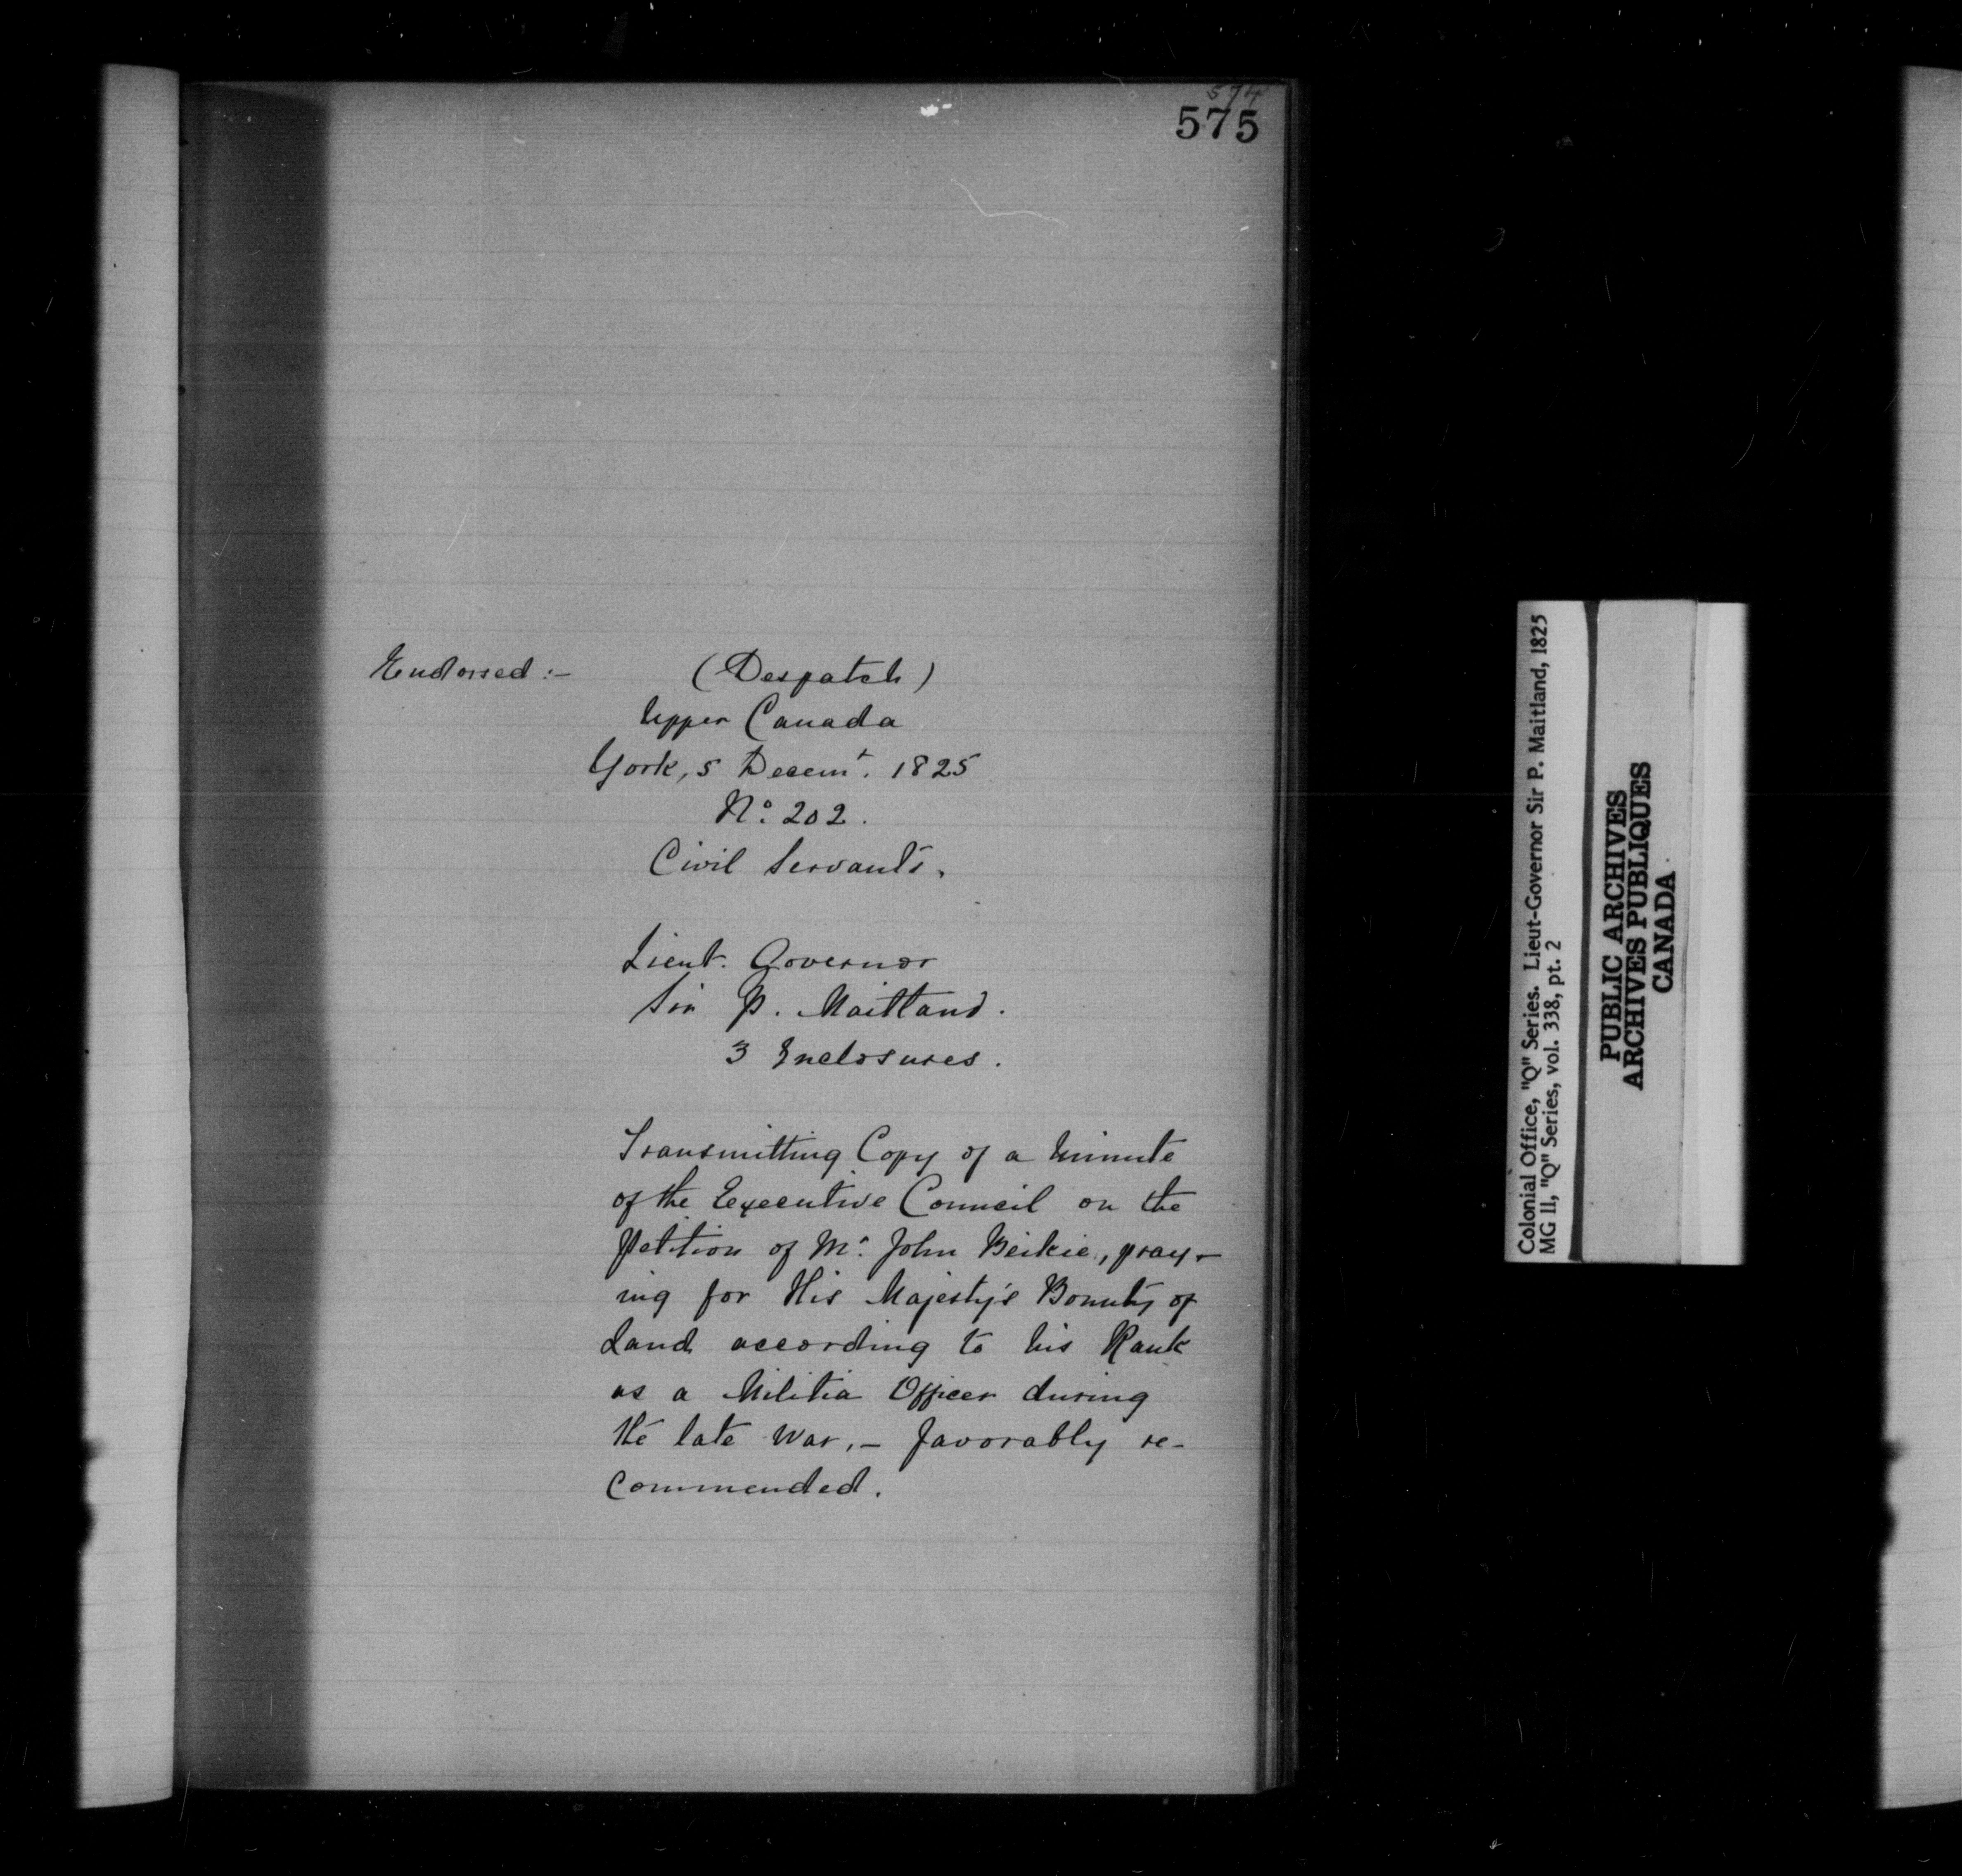 574
575
Endorsed :- (Despatch)
Upper Canada
York, 5 Decemt. 1825
No. 202.
Civil Servants.
Lieut. Governor
Sir P. Maitland.
3 Inclosures.
Transmitting Copy of a Minute
of the Executive Council on the
Petition of Mr. John Beikie, pray-
ing for His Majesty's Bounty of
Land according to his Rank
as a Militia Officer during
the late War, - favorably re-
commended.
Colonial Office, "Q" Series. Lieut-Governor Sir P. Maitland, 1825
MG 11, "Q" Series, vol. 338, pt. 2
PUBLIC ARCHIVES
ARCHIVES PUBLIQUES
CANADA